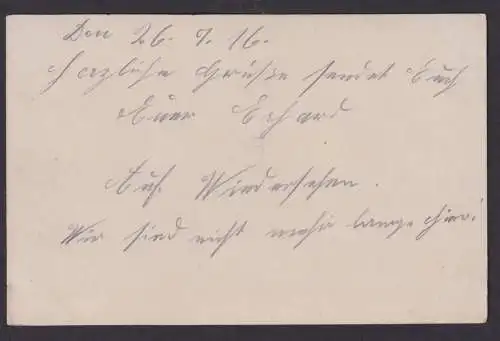 Den 26. 9. 16.
Herzliche Grüße sendet Euch
Euer Erhard
Auf Wiedersehen.
Wir sind nicht mehr lange hier!